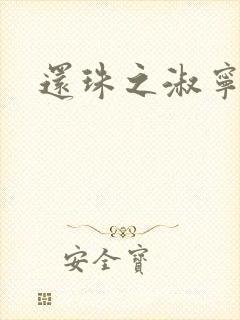 還珠之淑寧
安全寶